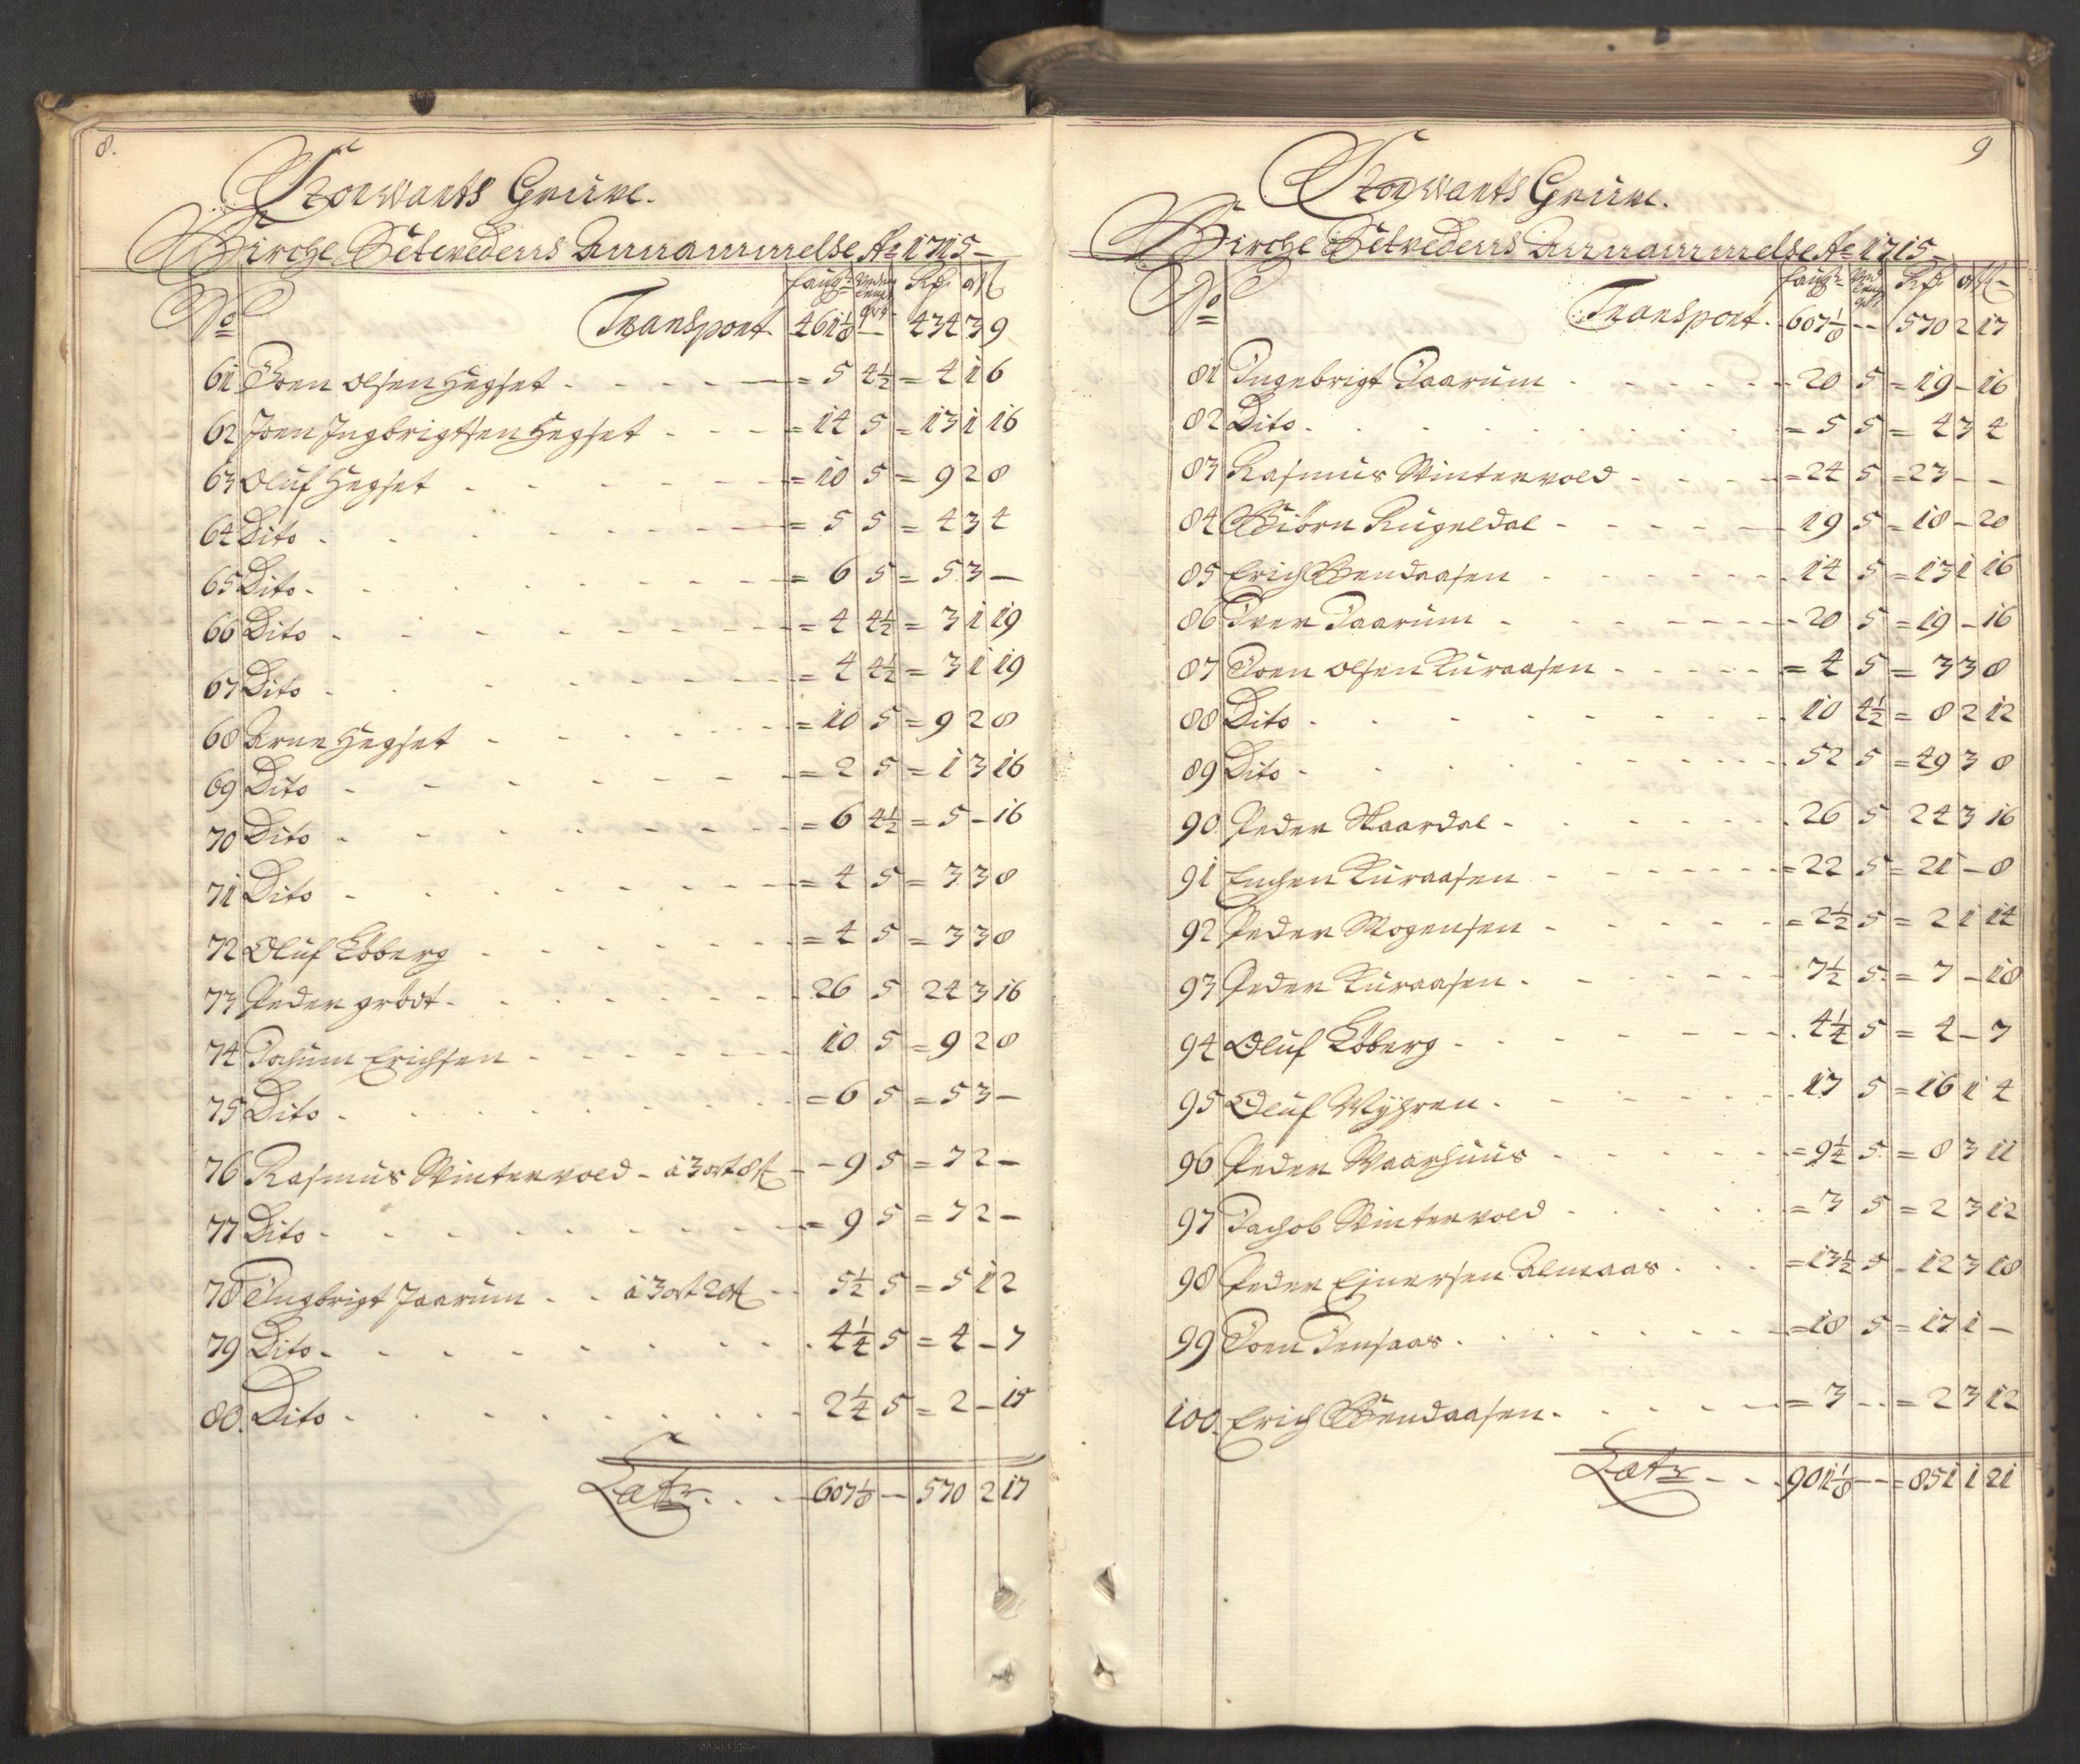 8.
Storwarts Grüve.
Birche Setvedens Annammelse Ao 1715
No faugr vedens lengd qvt Rdr ort ß
Transport 461 1/8 — 434 3 9
61 Joen olsen Hegset = 5 4 1/2 = 4 1 6
62 Joen Ingbrigtsen Hegset = 14 5 = 13 1 16
63 Oluf Hegset = 10 5 = 9 2 8
64 Dito = 5 5 = 4 3 4
65 Dito = 6 5 = 5 3 —
66 Dito = 4 4 1/2 = 3 1 19
67 Dito = 4 4 1/2 = 3 1 19
68 Arne Hegset = 10 5 = 9 2 8
69 Dito = 2 5 = 1 3 16
70 Dito = 6 4 1/2 = 5 - 16
71 Dito = 4 5 = 3 3 8
72 Oluf Köberg = 4 5 = 3 3 8
73 Peder grödt 26 5 24 3 16
74 Jochum Erichsen 10 5 = 9 2 8
75 Dito = 6 5 = 5 3 —
76 Rasmus Wintervold - a 3 ort 8 ß - 9 5 = 7 2 —
77 Dito = 9 5 = 7 2 —
78 Ingbrigt Jaarüm a 3 ort 20 ß 5 1/2 5 = 5 1 2
79 Dito 4 1/4 5 = 4 - 7
80. Dito 2 1/4 5 = 2 - 15
Latr 607 1/8 — 570 2 17
9
Storwarts Grüve.
Birche Setvedens Annammelse Ao 1715
No faugr ved lengd qvt Rdr ort ß
Transport 607 1/8 -- 570 2 17
81 Ingebrigt Jaarüm 20 5 = 19 - 16
82 Dito = 5 5 = 4 3 4
83 Rasmus Wintervold = 24 5 = 23 - -
84 Biörn Rügeldal 19 5 = 18 - 20
85 Erich Bendaasen 14 5 = 13 1 16
86 Iver Jaarüm 20 5 = 19 - 16
87 Joen olsen Kuraasen = 4 5 = 3 3 8
88 Dito 10 4 1/2 = 8 2 12
89 Dito 52 5 = 49 3 8
90 Peder Skaardal 26 5 24 3 16
91 Enchen Kuraasen = 22 5 = 21 - 8
92 Peder Mogensen = 2 1/2 5 = 2 1 14
93 Peder Kuraasen 7 1/2 5 = 7 - 18
94 Oluf Köberg 4 1/4 5 = 4 - 7
95 Oluf Myhren 17 5 = 16 1 4
96 Peder Waarhuus = 9 1/4 5 = 8 3 11
97 Jachob Wintervold = 3 5 = 2 3 12
98 Peder Ejnersen Almaas = 13 1/2 5 = 12 3 18
99 Joen Jensaas = 18 5 = 17 1 —
100. Erich Bendaasen = 3 -- = 2 3 12
Latr 901 1/8 -- = 851 1 21